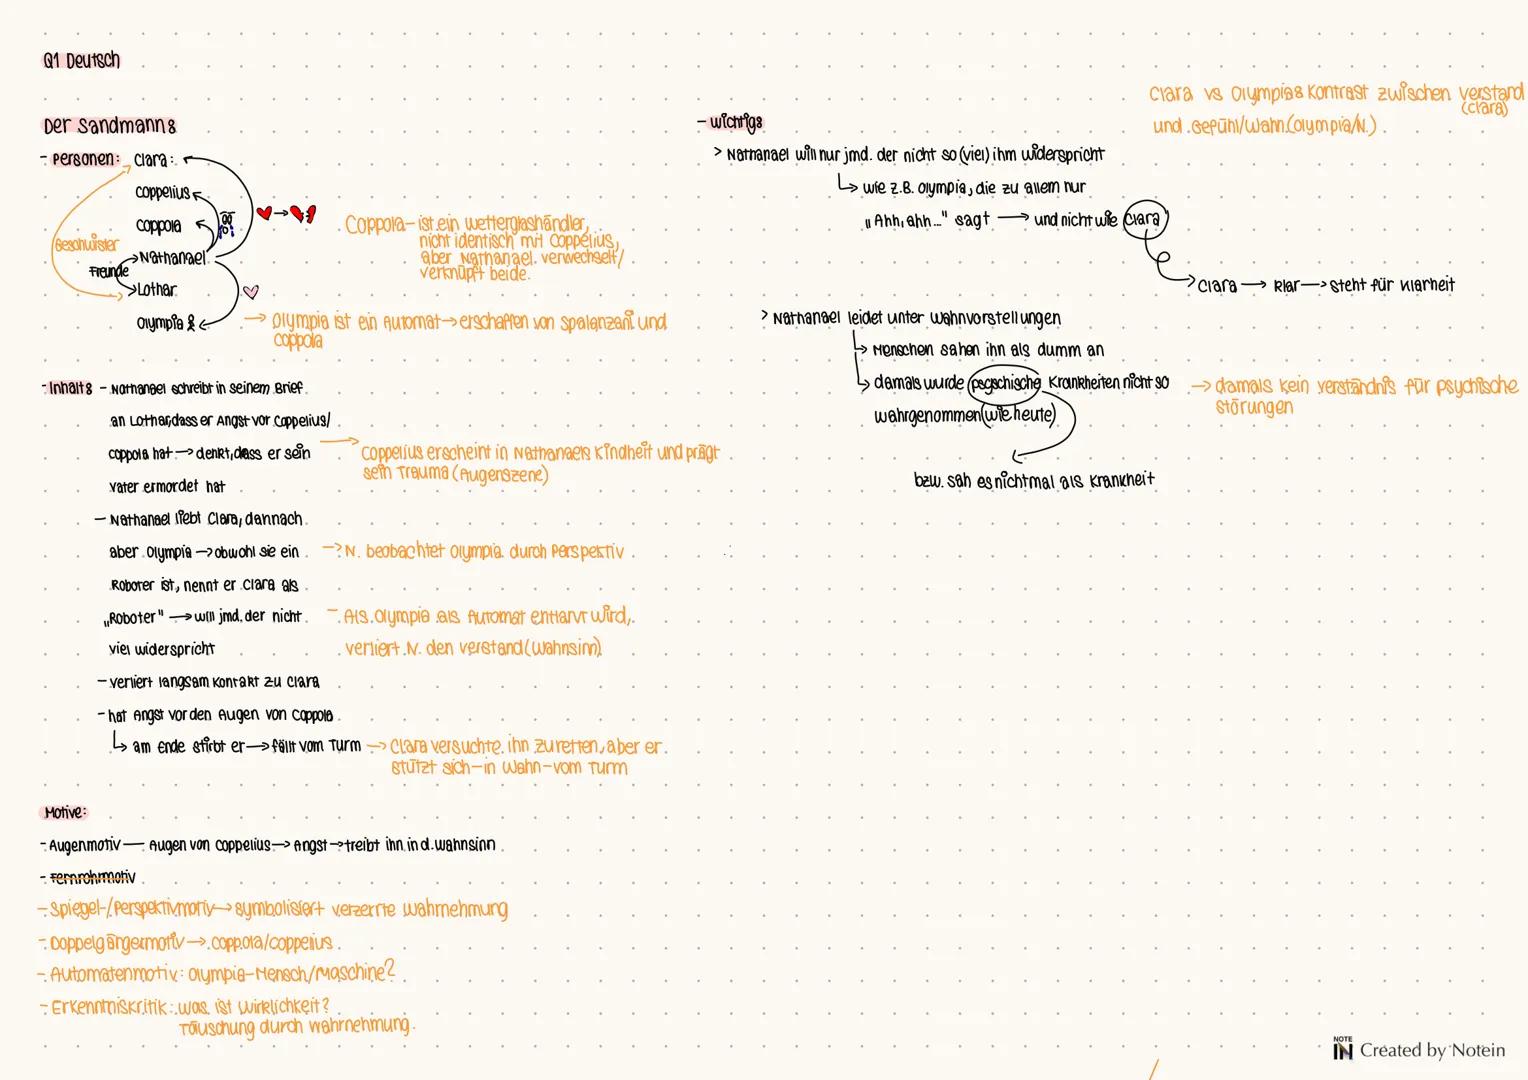 Q1 Deutsch
Der Sandmann:
- Personen: Clara:
Coppelius
Coppola
Geschwister
Nathanael
Freunde
Lothar
Olympia:
Coppola- ist ein Wetterglashändler,
nicht identisch mit Coppelius,
aber Nathanael verwechselt/
verknüpft beide.
→ Olympia ist ein Automat → erschaffen von Spalanzani und
Coppola
- Inhalt: - Nathanael schreibt in seinem Brief
an Lothar, dass er Angst vor Coppelius/
Coppola hat → denkt, dass er sein
Vater ermordet hat
→ Coppelius erscheint in Nathanaels Kindheit und prägt
sein Trauma (Augenszene)
- Nathanael liebt Clara, dannach
aber Olympia → obwohl sie ein
→ N. beobachtet Olympia durch Perspektiv
Roboter ist, nennt er Clara als
„Roboter" → will jmd. der nicht
viel widerspricht
- Als Olympia als Automat entlarvt wird,
verliert N. den Verstand (Wahnsinn)
- verliert langsam Kontakt zu Clara
- hat Angst vor den Augen von Coppola
↳ am Ende stirbt er → fällt vom Turm → Clara versuchte ihn zu retten, aber er
stützt sich - in Wahn - vom Turm
Motive:
- Augenmotiv — Augen von Coppelius → Angst → treibt ihn in d. Wahnsinn
- Fernrohrmotiv
- Spiegel-/Perspektivmotiv → symbolisiert verzerrte Wahrnehmung
- Doppelgängermotiv → Coppola/Coppelius
- Automatenmotiv: Olympia - Mensch/Maschine?
- Erkenntniskritik: was ist Wirklichkeit?
Täuschung durch Wahrnehmung.
- Wichtig:
Clara vs Olympia: Kontrast zwischen Verstand
(Clara)
und Gefühl/Wahn (Olympia/N.)
> Nathanael will nur jmd. der nicht so (viel) ihm widerspricht
↳ wie z.B. Olympia, die zu allem nur
„Ahh, ahh..." sagt → und nicht wie Clara
→ Clara → klar → steht für Klarheit
> Nathanael leidet unter Wahnvorstellungen
↳ Menschen sahen ihn als dumm an
↳ damals wurde psychische Krankheiten nicht so
wahrgenommen (wie heute)
→ damals kein Verständnis für psychische
Störungen
bzw. sah es nichtmal als Krankheit
NOTE
IN Created by Notein